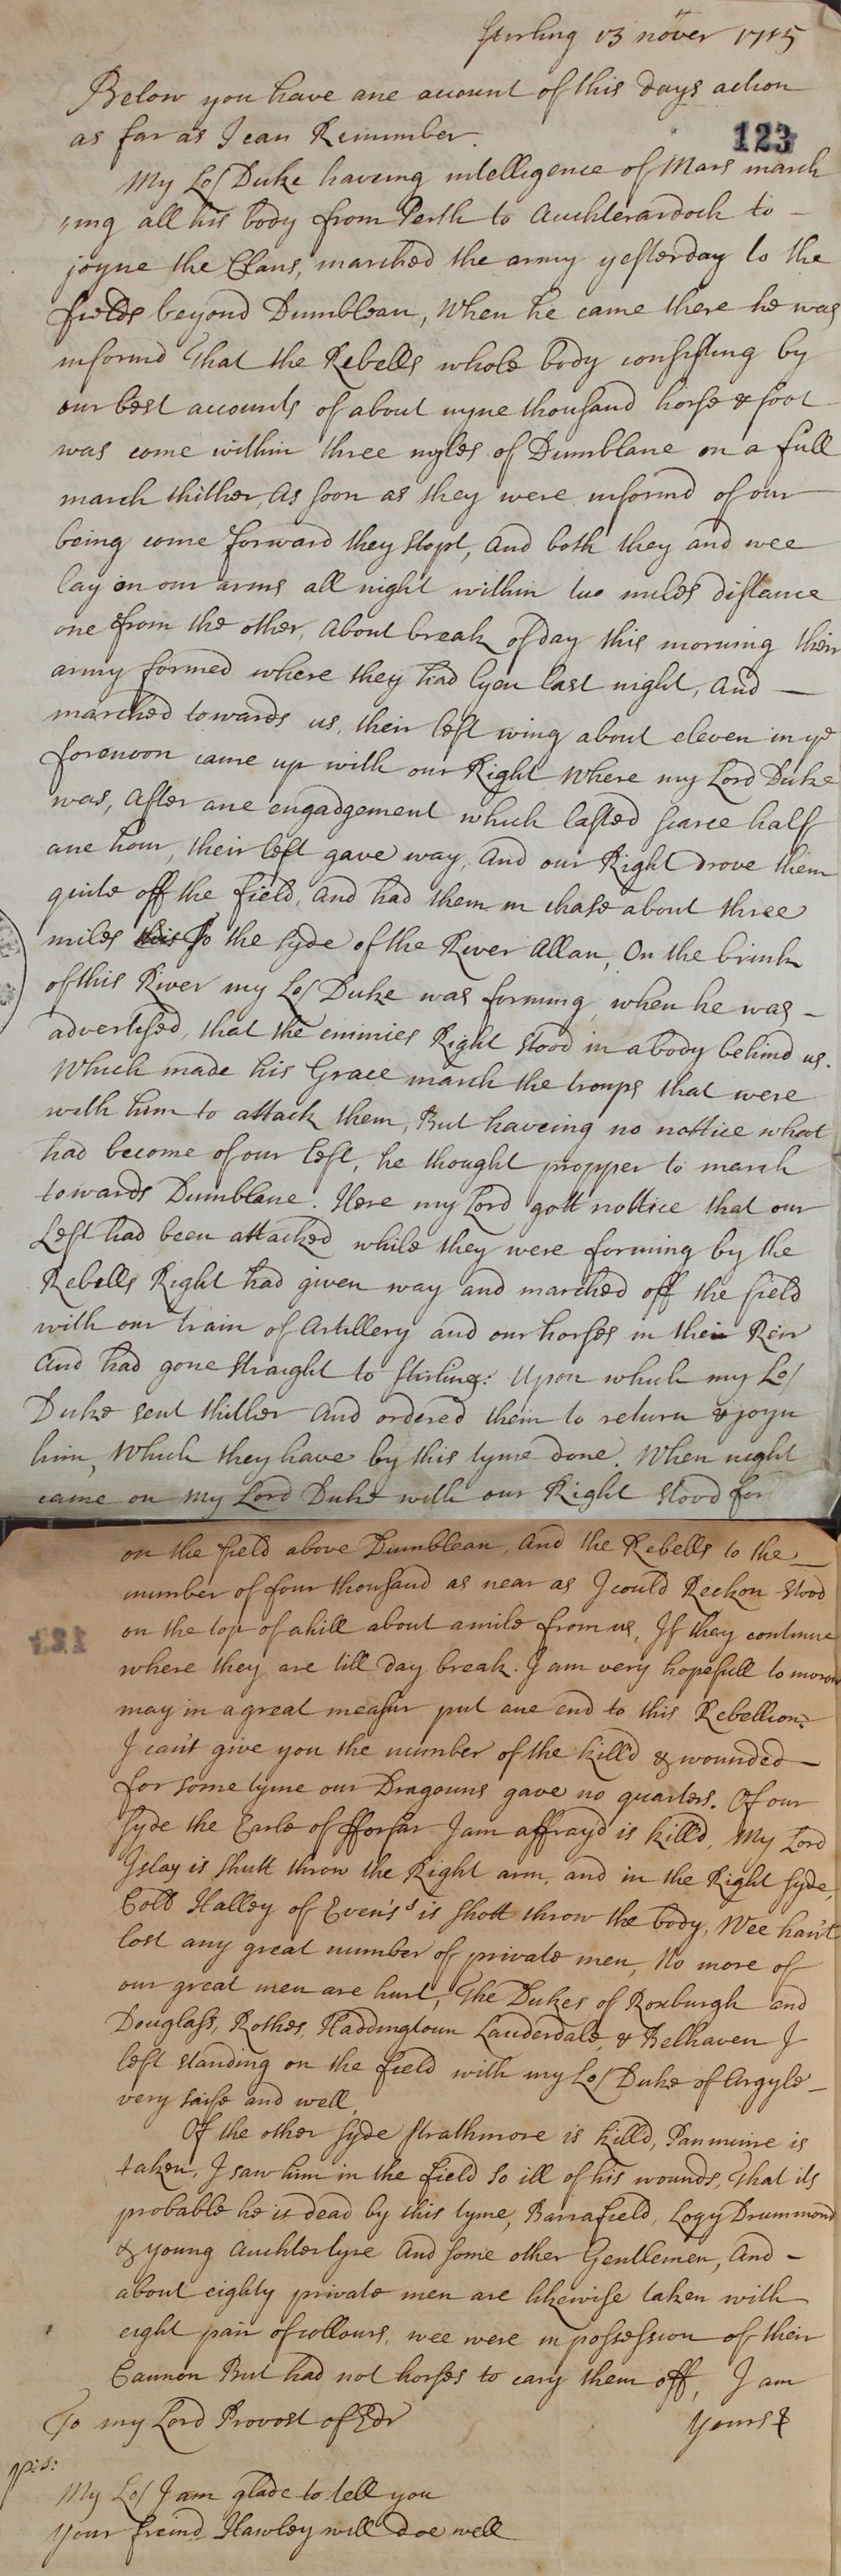 Sterling 13 nover 1715
Below you have ane account of this days action
as far as I can Remember.
123
My Lo/ Duke haveing intelligence of Mars march
ing all his body from Perth to Auchterardoch to
joyne the Clans, marched the army yesterday to the
fields beyond Dumblean, When he came there he was
informd That the Rebells whole body consisting by
our best accounts of about nyne thousand horse & foot
was come within three myles of Dumblane on a full
march thither, As soon as they were informd of our
being come forward they stopt, And both they and wee
lay on our arms all night within two miles distance
one from the other, About break of day this morning their
army formed where they had lyen last night, And
marched towards us, their left wing about eleven in ye
forenoon came up with our Right Where my Lord Duke
was, After ane engadgement which lasted scarce half
ane hour, their left gave way, And our Right drove them
quite off the field, And had them in chase about three
miles to the syde of the River Allan, On the brink
of this River my Lo/ Duke was forming, when he was
advertised, that the enimies Right stood in a body behind us.
Which made his Grace march the troups that were
with him to attack them, But haveing no nottice what
had become of our left, he thought propper to march
towards Dumblane. Here my Lord gott nottice that our
Left had been attacked while they were forming by the
Rebells Right had given way and marched off the field
with our train of Artillery and our horses in their Reir
And had gone straight to Stirling: Upon which my Lo/
Duke sent thither And ordered them to return & joyn
him, Which they have by this tyme done. When night
came on My Lord Duke with our Right stood for
on the field above Dumblean, And the Rebells to the
number of four thousand as near as I could Reckon stood
on the top of a hill about a mile from us, If they continue
where they are till day break. I am very hopefull to morow
may in a great measur put ane end to this Rebellion.
I can't give you the number of the killd & wounded
for some tyme our Dragouns gave no quarters. Of our
syde the Earle of fforfar I am affrayd is killd, My Lord
Islay is shutt throw the Right arm, and in the Right syde,
Coll Halley of Even's is shott throw the body, Wee han't
lost any great number of private men, No more of
our great men are hurt, The Dukes of Roxburgh and
Douglass, Rothes, Haddingtoun Lauderdale, & Belhaven I
left standing on the field with my Lo/ Duke of Argyle
very saife and well,
Of the other syde Strathmore is killd, Panmure is
taken, I saw him in the field so ill of his wounds, That its
probable he is dead by this tyme, Barrafield, Logy Drummond
& young Auchterlyre And some other Gentlemen, And
about eighty private men are likewise taken with
eight pair of collours, wee were in possession of their
Cannon But had not horses to cary them off, I am
To my Lord Provost of Edr
Yours &
ps:
My Lo/ I am glade to tell you
your freind Hawley will doe well